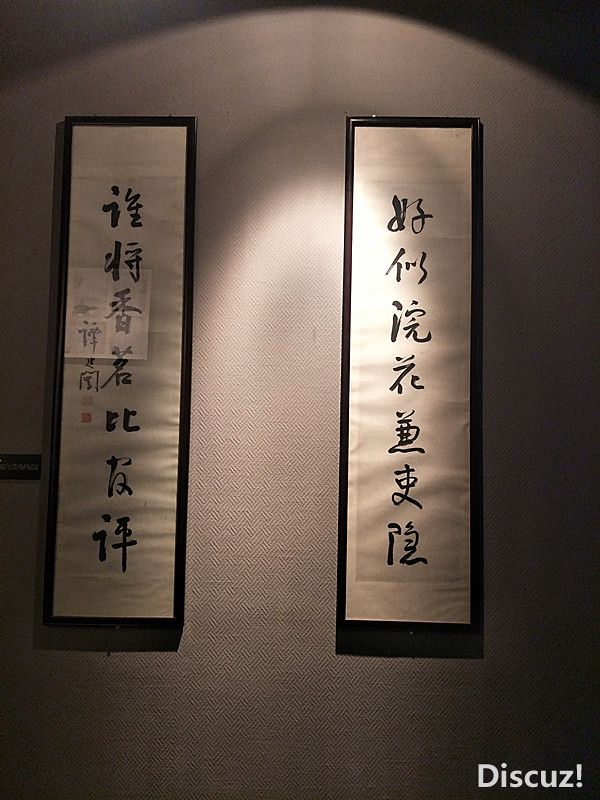 好似浣花兼吏隐
谁将香茗比官评
谭延闓
Discuz!